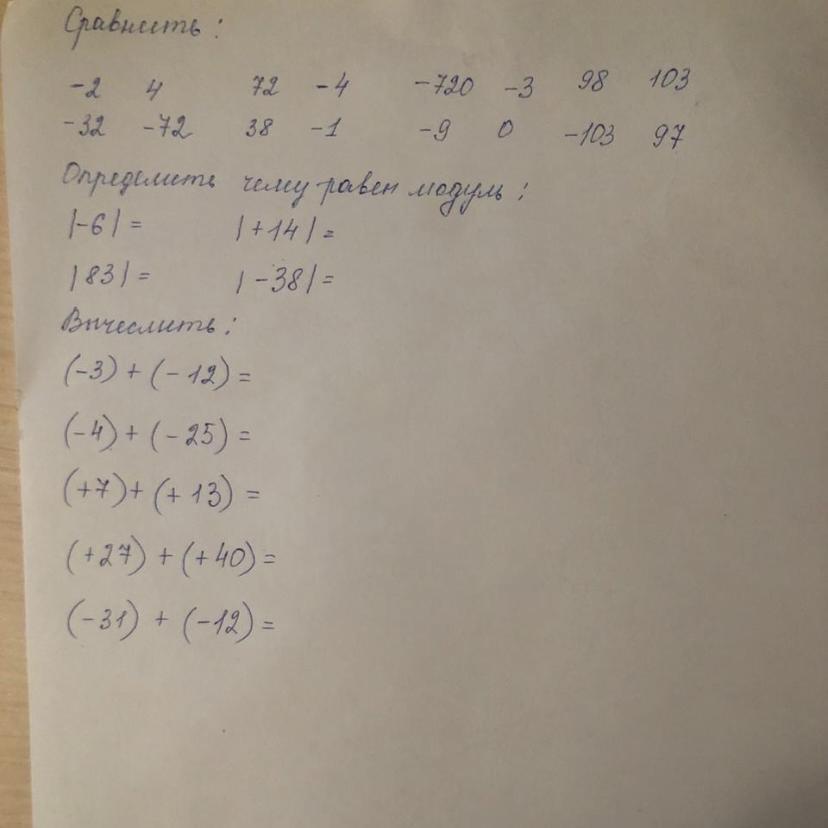 Сравнить :
-2 4 72 -4 -720 -3 98 103
-32 -72 38 -1 -9 0 -103 97
Определить чему равен модуль :
|-6| = |+14| =
|83| = |-38| =
Вычеслить :
(-3) + (-12) =
(-4) + (-25) =
(+7) + (+13) =
(+27) + (+40) =
(-31) + (-12) =